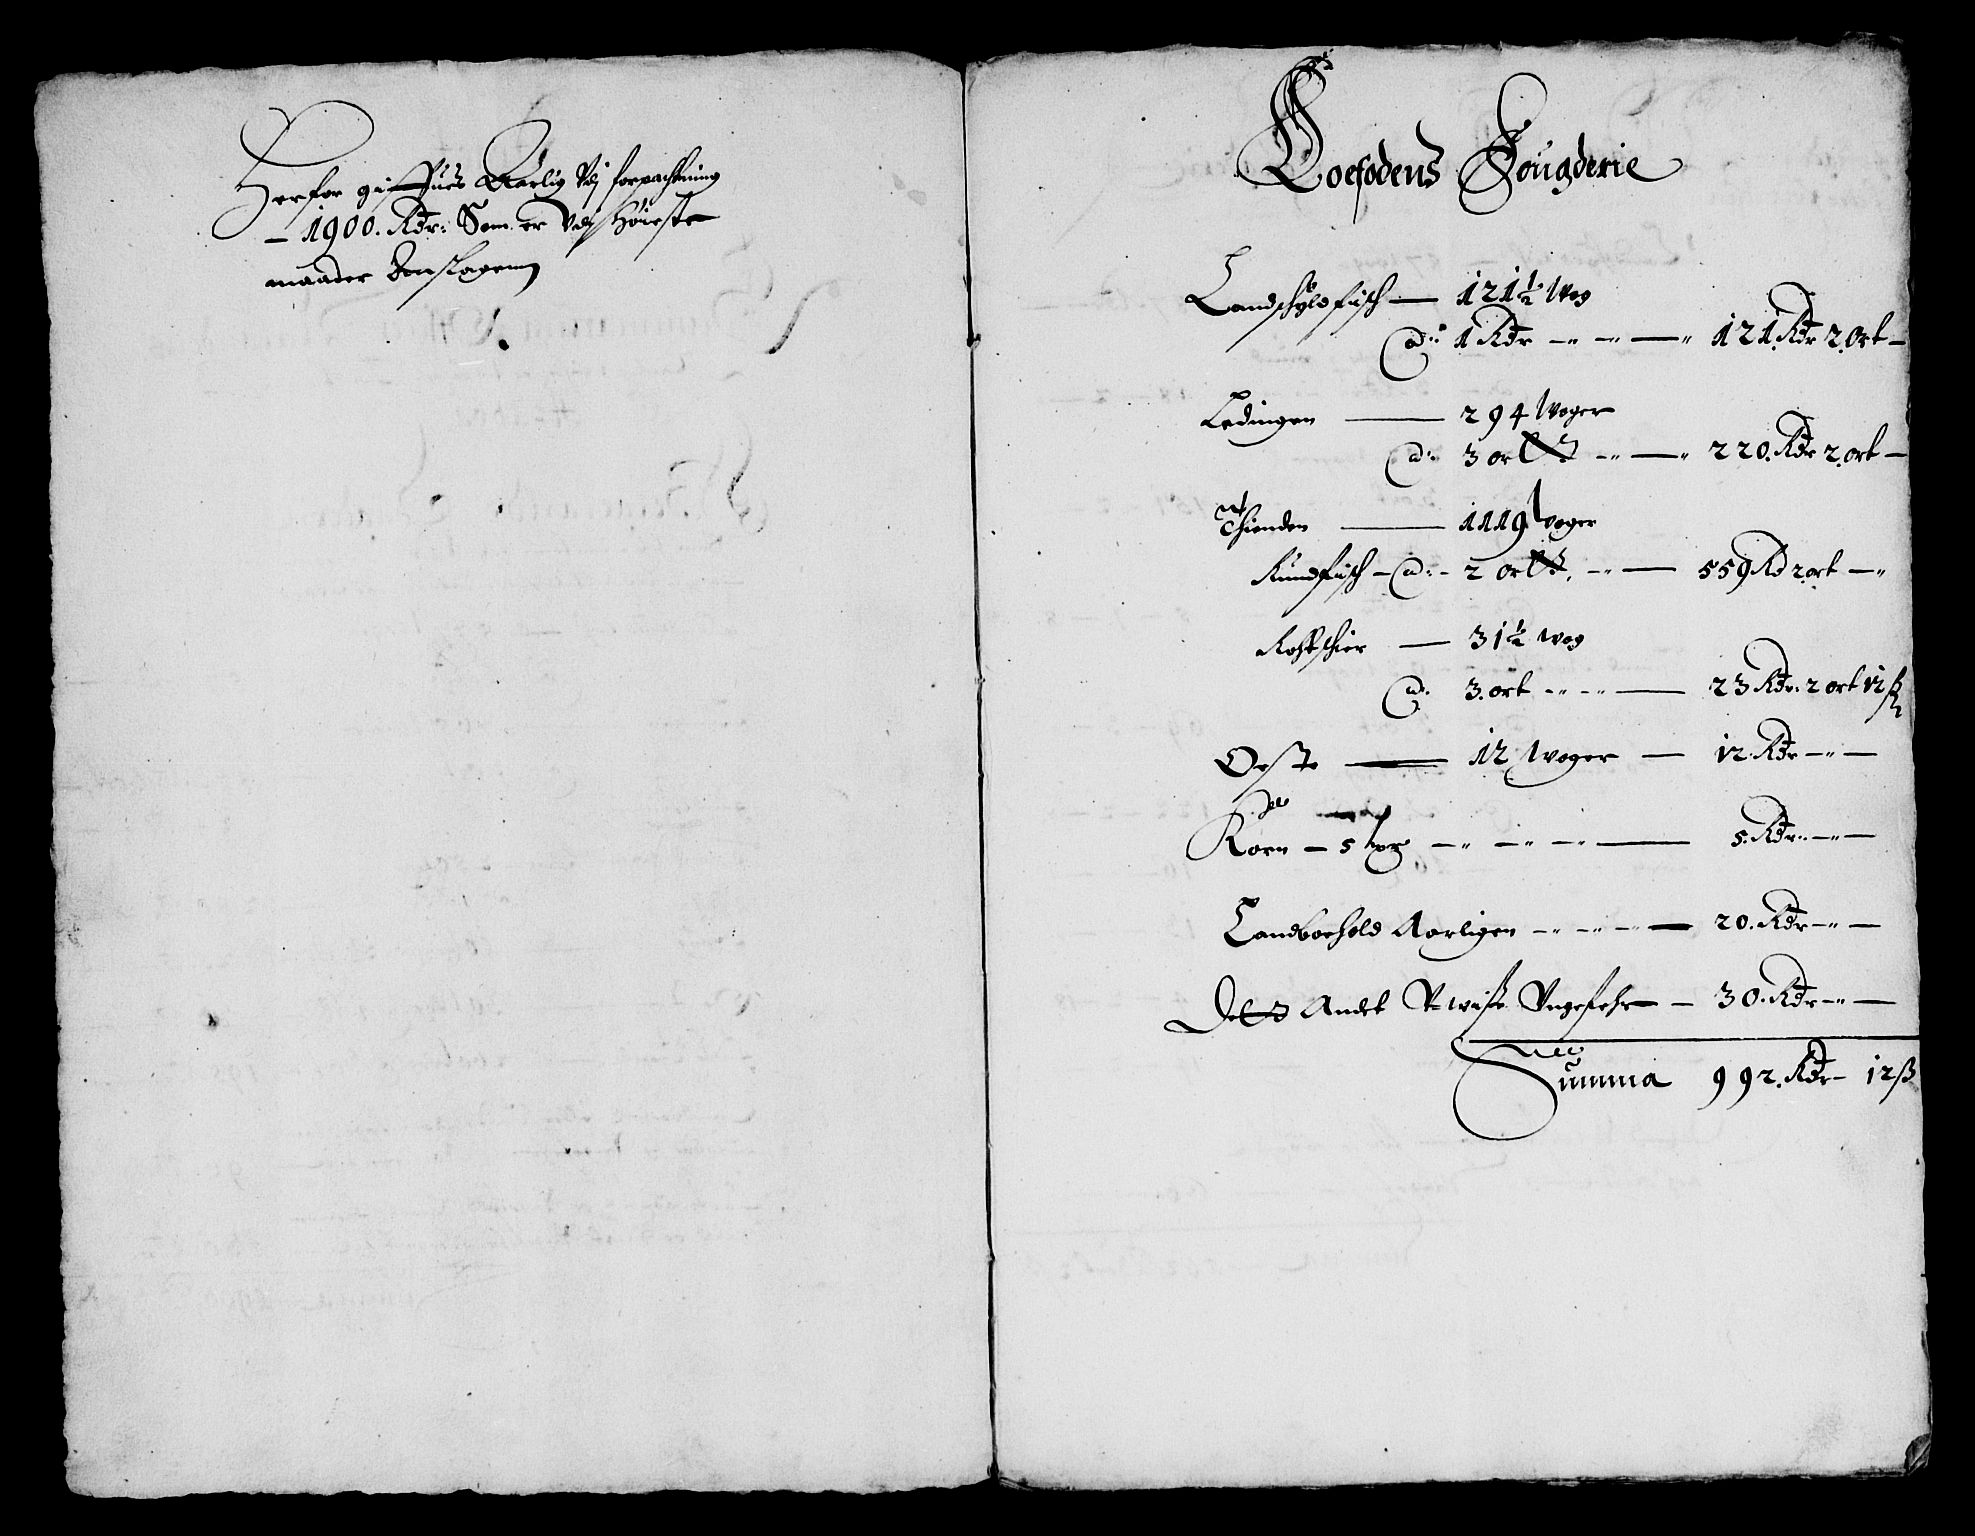 Herfor giffues Aarlig Vdj forpachtning
– 1900. Rdr: Som er Vdj Høieste
maader Anslagenn
Loefodens Fougderie
Landschyld fisch — 121½ Wog
a: 1 Rdr — 121. Rdr 2. Ort —
Ledingen — 294 Woger
a: 3 ort — 220. Rdr 2. ort —
Thienden — 1119 Woger
Rundfisch – a: – 2 ort. — 559 Rd 2 ort —
Rosskhier — 31½ wog
a: 3. ort — 23 Rdr. 2 ort 12 ß
Oste — 12 Woger — 12. Rdr —
Korn – 5 — 5. Rdr —
Landboehold Aarligen — 20. Rdr —
Dett Andet V-wisse Vngefehr — 30. Rdr —
Summa 992. Rdr – 12 ß